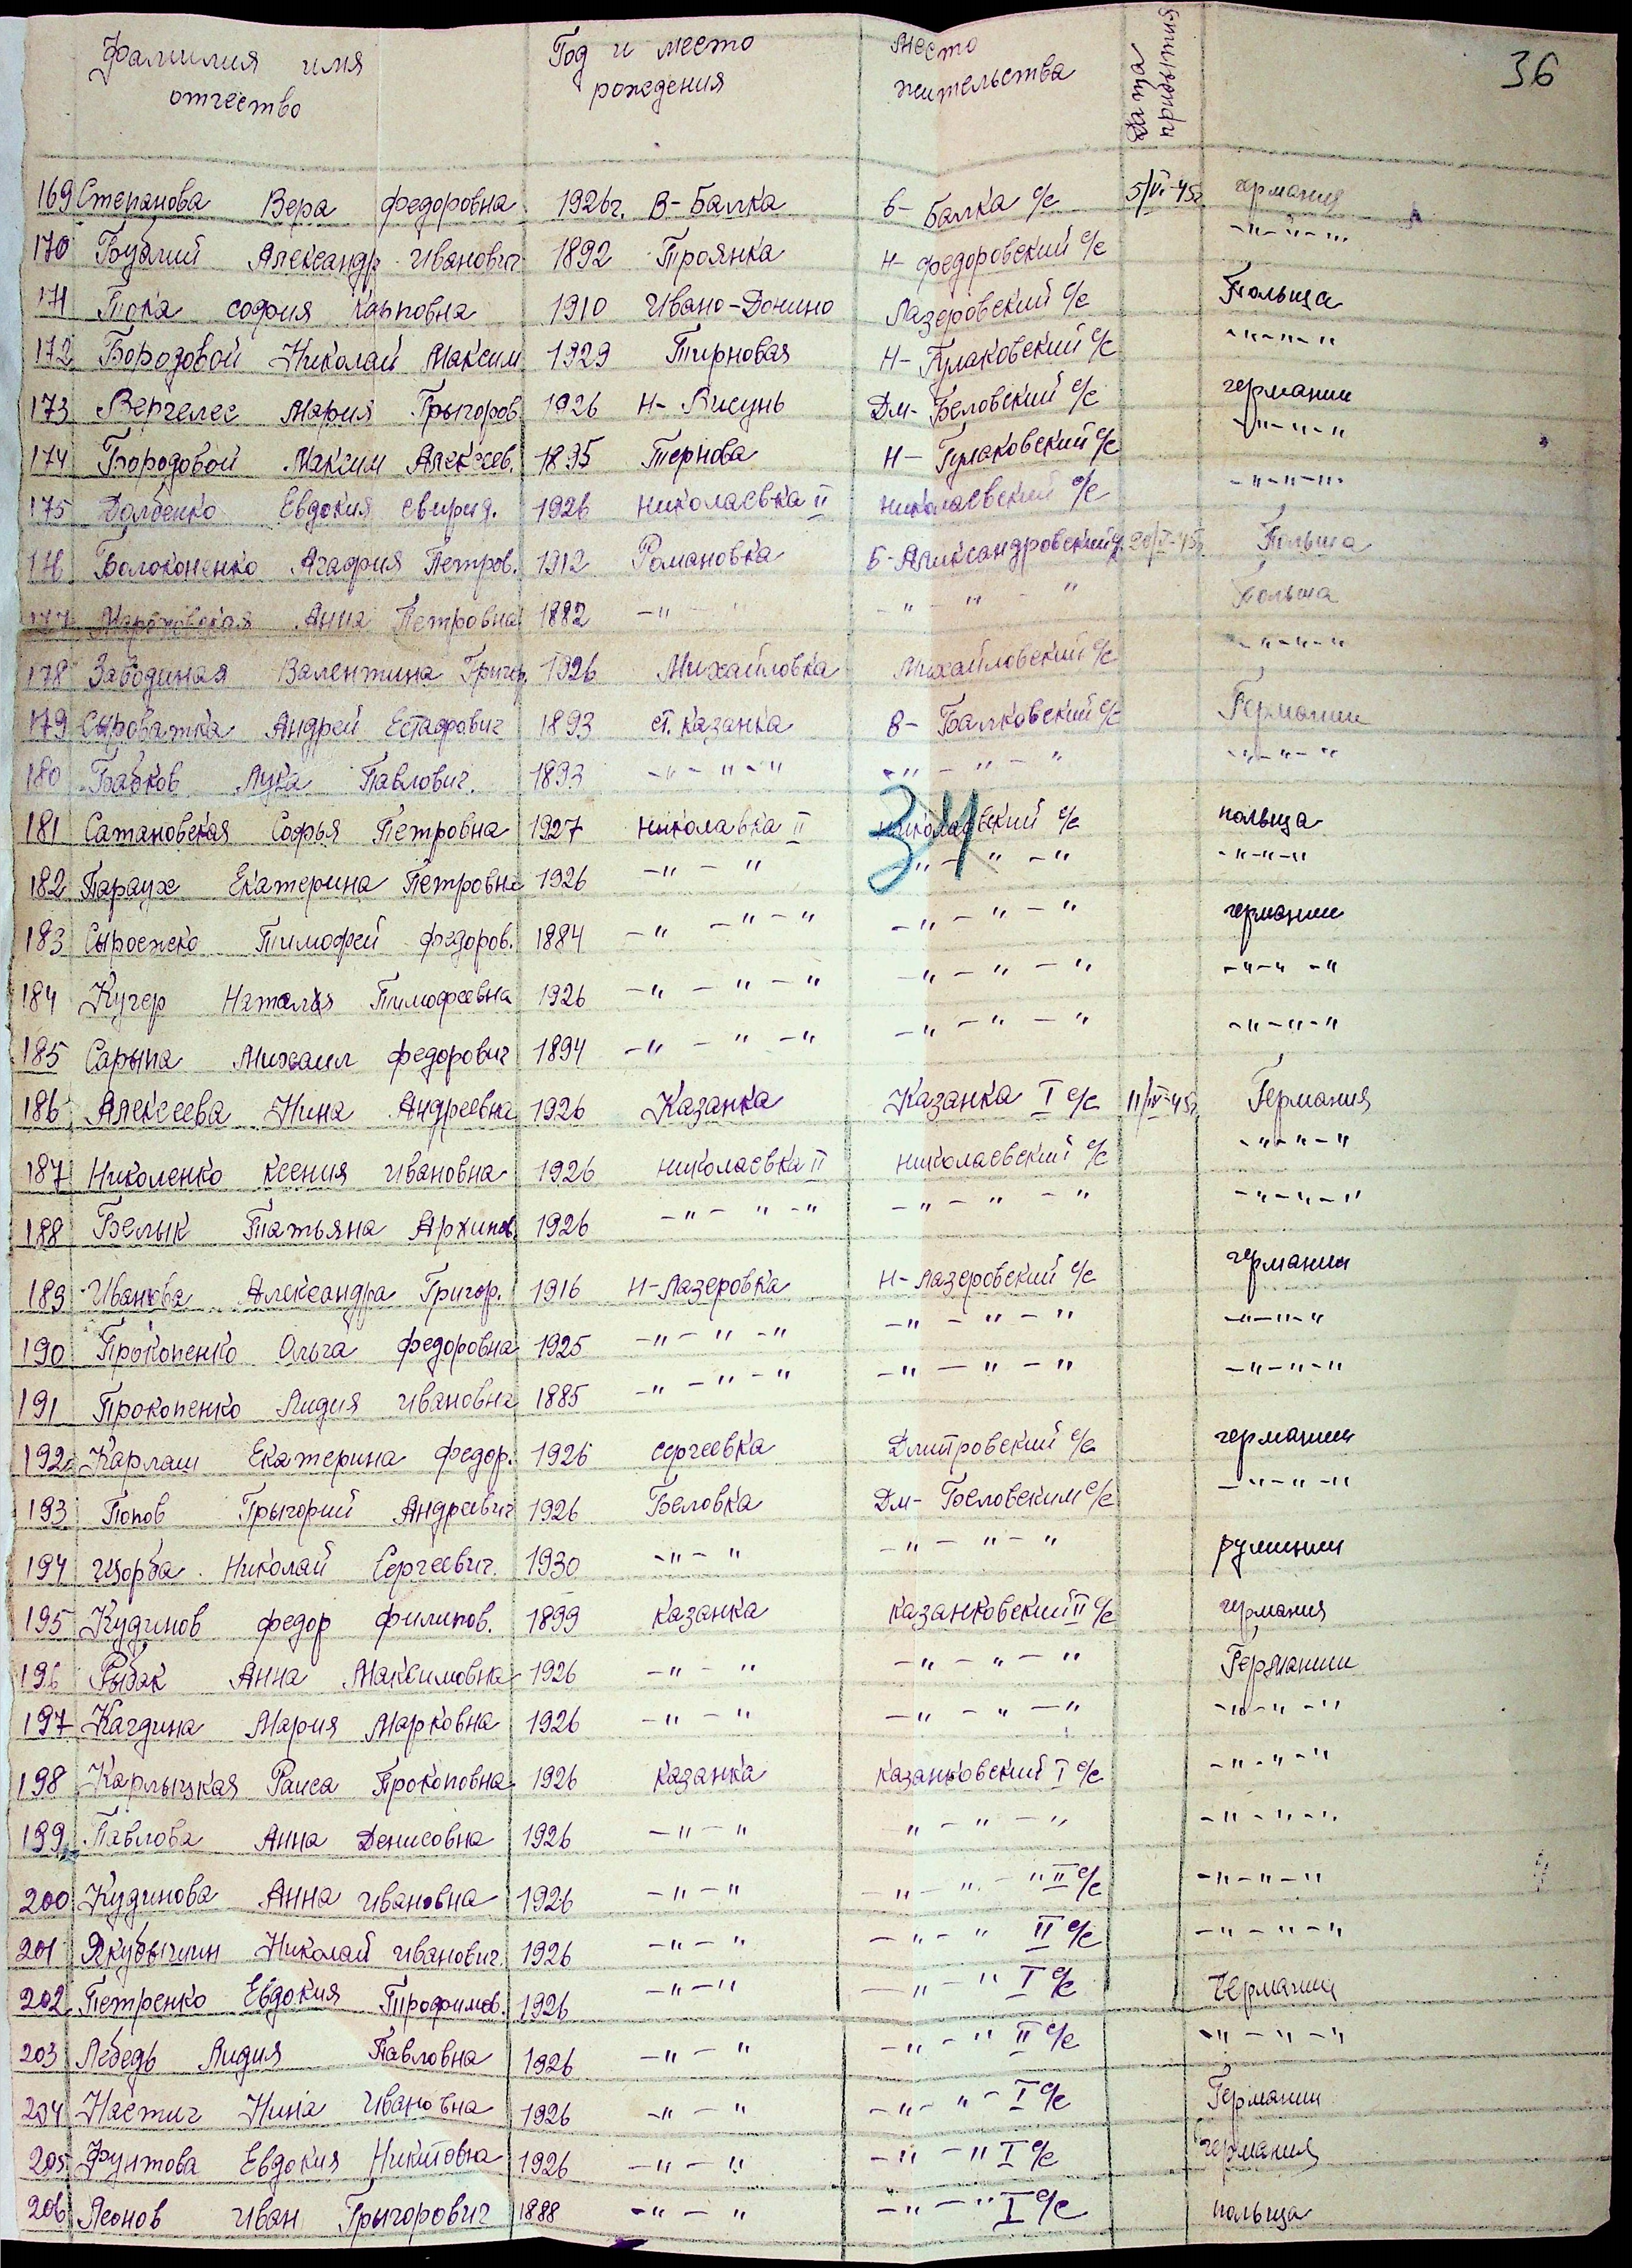 36
Фамилия имя отчество Год и место рождения Место жительства Дата прибытия
169 Степанова Вера Федоровна 1926г. В-Балка в-Балка с/с 5/VI-45г. германия
170 Александр Иванович 1892 Троянка Н-федоровский с/с -"-"-"
171 Тока София Карповна 1910 Ивано-Донино Лазеровский с/с Польща
172 Бородовой Николай Максим 1929 Тирновая Н-Гулаковский с/с -"-"-"
173 Вергелес Мария Грыгоров. 1926 Н-Висунь Дм-Беловский с/с германии
174 Бородовой Максим Алексеев. 1895 Тернова Н-Гулаковский с/с -"-"-"
175 Долбенко Евдокия Свирид. 1926 николаевка II николаевский с/с -"-"-"
176 Болоконенко Агафия Петров. 1912 Романовка Б-Александровский Польша
177 Анна Петровна 1882 -"-" -"-"-" Польша
178 Заводиная Валентина Григор. 1926 Михайловка Михайловский с/с -"-"-"
179 Сыроватка Андрей Естафович 1893 ст. Казанка В-Балковский с/с Германии
180 Бабков Лука Павлович. 1893 -"-"-" -"-"-" -"-"-"
34
181 Сатановская Софья Петровна 1927 николавка II николаевский с/с польща
182 Параух Екатерина Петровна 1926 -"-" -"-"-" -"-"-"
183 Сыроежко Тимофей Федоров. 1884 -"-"-" -"-"-" германии
184 Кучер Наталия Тимофеевна 1926 -"-"-" -"-"-" -"-"-"
185 Сарыпа Михаил федорович 1894 -"-"-" -"-"-" -"-"-"
186 Алексеева Нина Андреевна 1926 Казанка Казанка I с/с 11/IV-45г. Германия
187 Николенко Ксения Ивановна 1926 николаевка II николаевский с/с -"-"-"
188 Белык Татьяна Архипов. 1926 -"-"-" -"-"-" -"-"-"
189 Иванова Александра Григор. 1916 Н-Лазеровка Н-Лазеровский с/с германии
190 Прокопенко Ольга Федоровна 1925 -"-"-" -"-"-" -"-"-"
191 Прокопенко Лидия Ивановна 1885 -"-"-" -"-"-" -"-"-"
192 Карлаш Екатерина Федор. 1926 Сергеевка Дмитровский с/с германии
193 Попов Грыгорий Андреевич 1926 Беловка Дм-Беловским с/с -"-"-"
194 Щорба Николай Сергеевич. 1930 -"-" -"-"-" румынии
195 Кудинов федор филипов. 1899 Казанка казанковский II с/с германия
196 Рыбак Анна Максимовна 1926 -"-" -"-"-" Германии
197 Кагдина Мария Марковна 1926 -"-" -"-"-" -"-"-"
198 Карлыцкая Раиса Прокоповна 1926 Казанка казанковский I с/с -"-"-"
199 Павлова Анна Денисовна 1926 -"-" "-"-" -"-"-"
200 Кудинова Анна Ивановна 1926 -"-" -"-"-" II с/с -"-"-"
201 Якубычин Николай Иванович. 1926 -"-" -"-" II с/с -"-"-"
202 Петренко Евдокия Трофимов. 1926 -"-" -"-" I с/с Германии
203 Лебедь Лидия Павловна 1926 -"-" -"-" II с/с -"-"-"
204 Настич Нина Ивановна 1926 -"-" -"-"- I с/с Германии
205 Фунтова Евдокия Никитовна 1926 -"-" -"-" I с/с германия
206 Леонов Иван Грыгорович 1888 -"-" -"-" I с/с польща